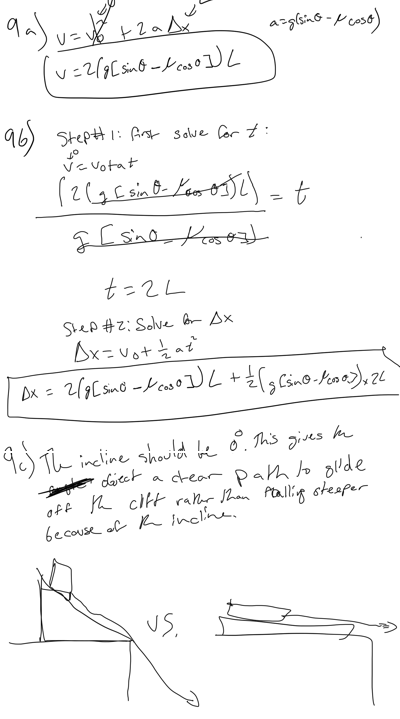 9a) v = v₀² + 2aΔx a=g(sinθ - μcosθ)
v = 2(g[sinθ - μcosθ])L
9b) Step #1: First solve for t:
v = v₀tat
(2(g[sinθ - μcosθ])L) = t
g[sinθ - μcosθ]
t = 2L
Step #2: Solve for Δx
Δx = v₀ + ½at²
Δx = 2(g[sinθ - μcosθ])L + ½(g[sinθ - μcosθ]) × 2L
9c) The incline should be 0°. This gives the
object a clear path to glide
off the cliff rather than falling steeper
because of the incline.
VS.